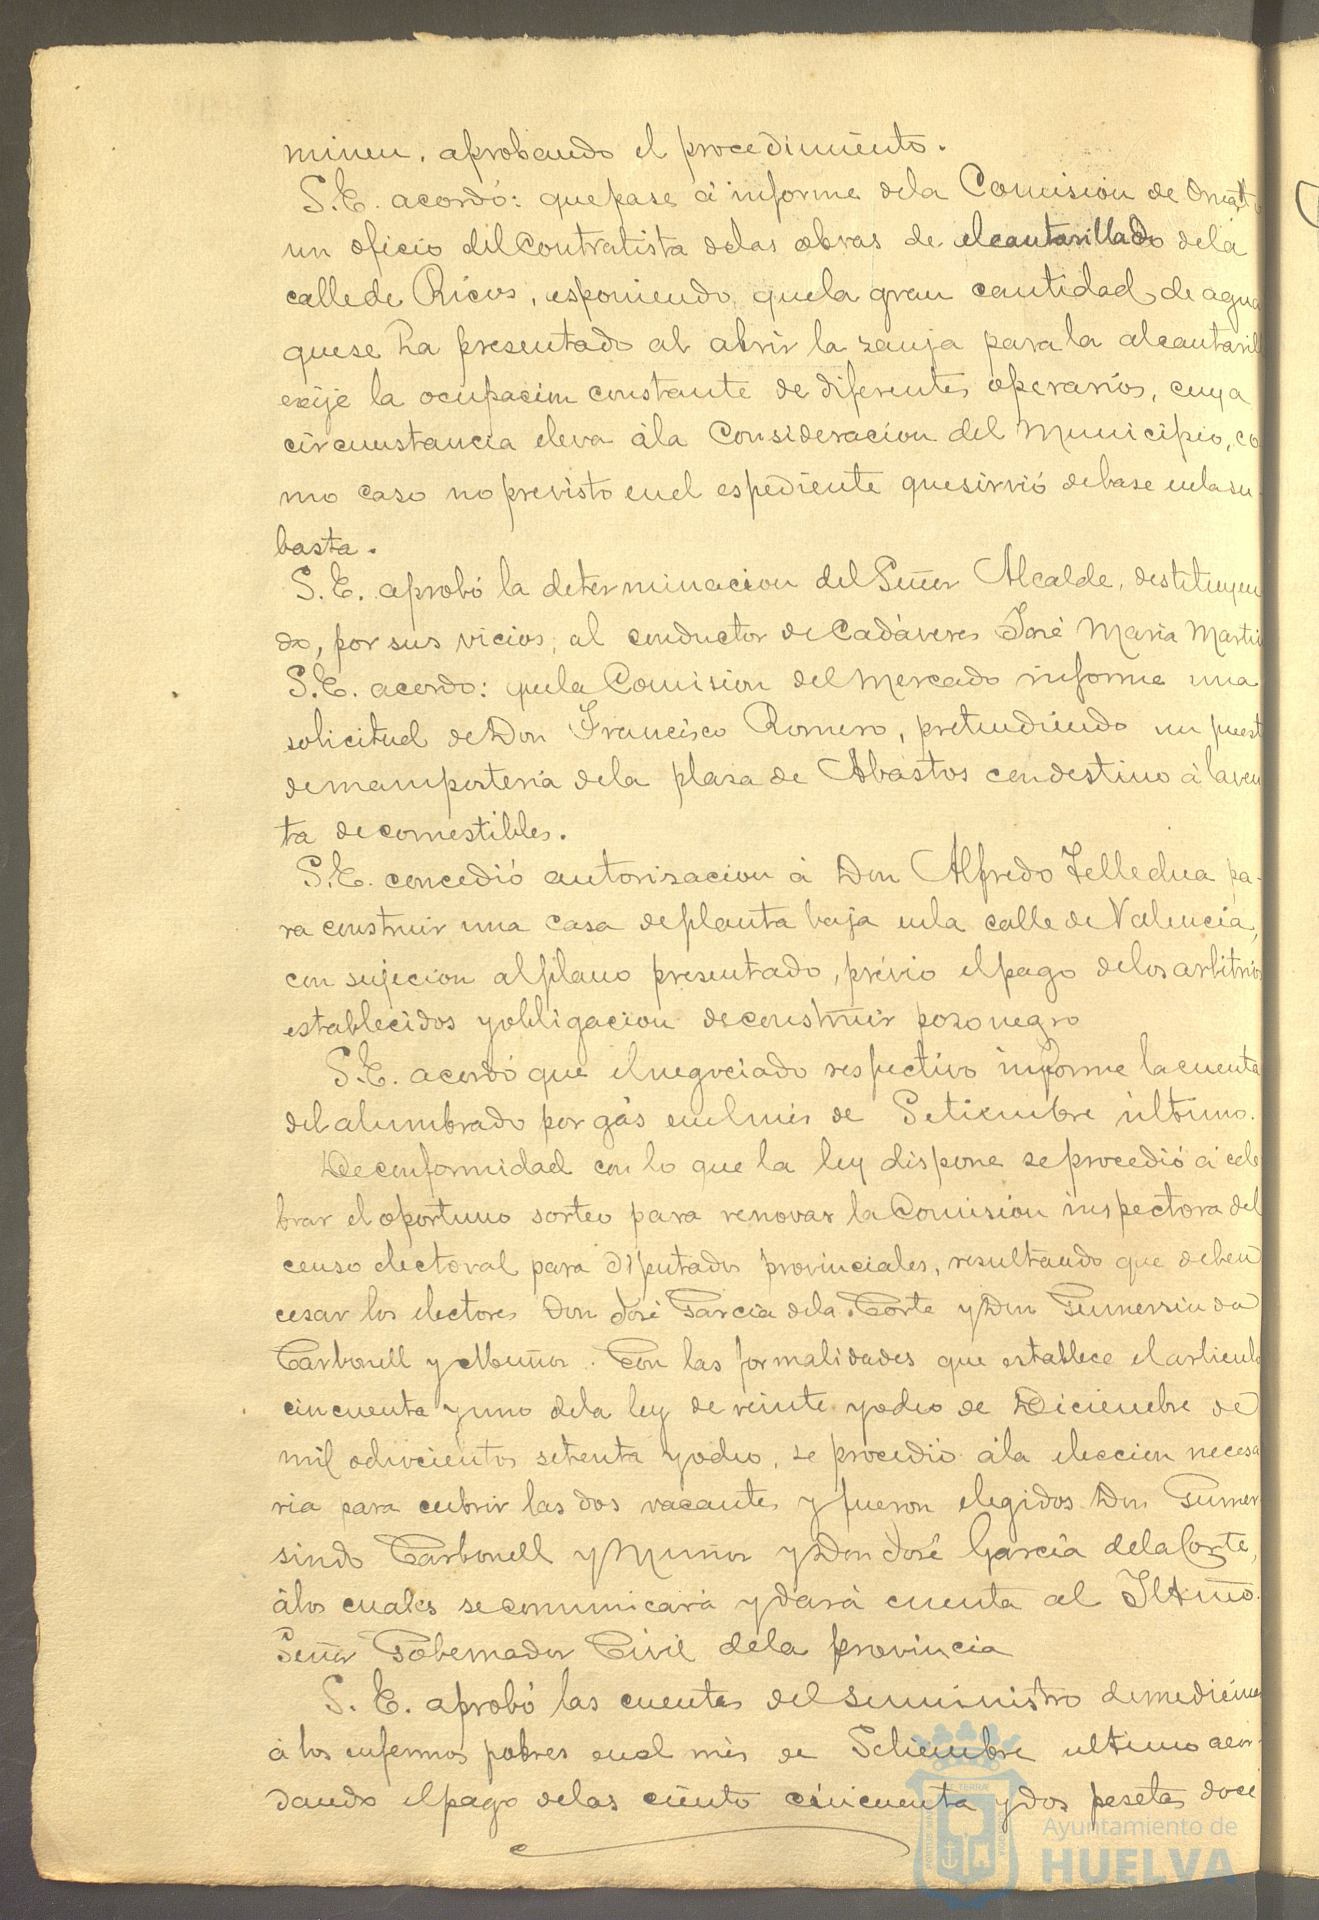 minen. aprobando el procedimiento.
S.E. acordó: que pase á informe de la Comision de Ornato
un oficio del Contratista de las obras de alcantarillado de la
calle de Ricos, esponiendo, que la gran cantidad de agua
que se ha presentado al abrir la zanja para la alcantarill
exije la ocupacion constante de diferentes operarios, cuya
circunstancia eleva á la Consideracion del Municipio, co
mo caso no previsto en el espediente que sirvió de base en la su-
basta.
S.E. aprobó la determinacion del Señor Alcalde, destituyen
do, por sus vicios, al conductor de Cadáveres José Maria Marti
S.E. acordó: que la Comision del Mercado informe una
solicitud de Don Francisco Romero, pretendiendo un puest
de mamposteria de la plaza de Abastos con destino á la ven
ta de comestibles.
S.E. concedió autorizacion á Don Alfredo pa-
ra construir una casa de planta baja en la calle de Valencia,
con sujecion al plano presentado, prévio el pago de los arbitrios
establecidos y obligacion de construir pozo negro
S.E. acordó que el negociado respectivo informe la cuenta
del alumbrado por gás en el mes de Setiembre último.
De conformidad con lo que la ley dispone se procedió á cele
brar el oportuno sorteo para renovar la Comision inspectora del
censo electoral para Diputados provinciales, resultando que deben
cesar los electores Don José Garcia de la Corte y Don Gumersindo
Carbonell y Muñoz. Con las formalidades que establece el articulo
cincuenta y uno de la ley de veinte y ocho de Diciembre de
mil ochocientos setenta y ocho, se procedió á la eleccion necesa
ria para cubrir las dos vacantes y fueron elegidos Don Gumer-
sindo Carbonell y Muñoz y Don José Garcia de la Corte,
á los cuales se comunicará y dará cuenta al Iltmo.
Señor Gobernador Civil de la provincia
S.E. aprobó las cuentas del suministro de medicinas
á los enfermos pobres en el mes de Setiembre ultimo acor-
dando el pago de las ciento cincuenta y dos pesetas doce
Ayuntamiento de
HUELVA